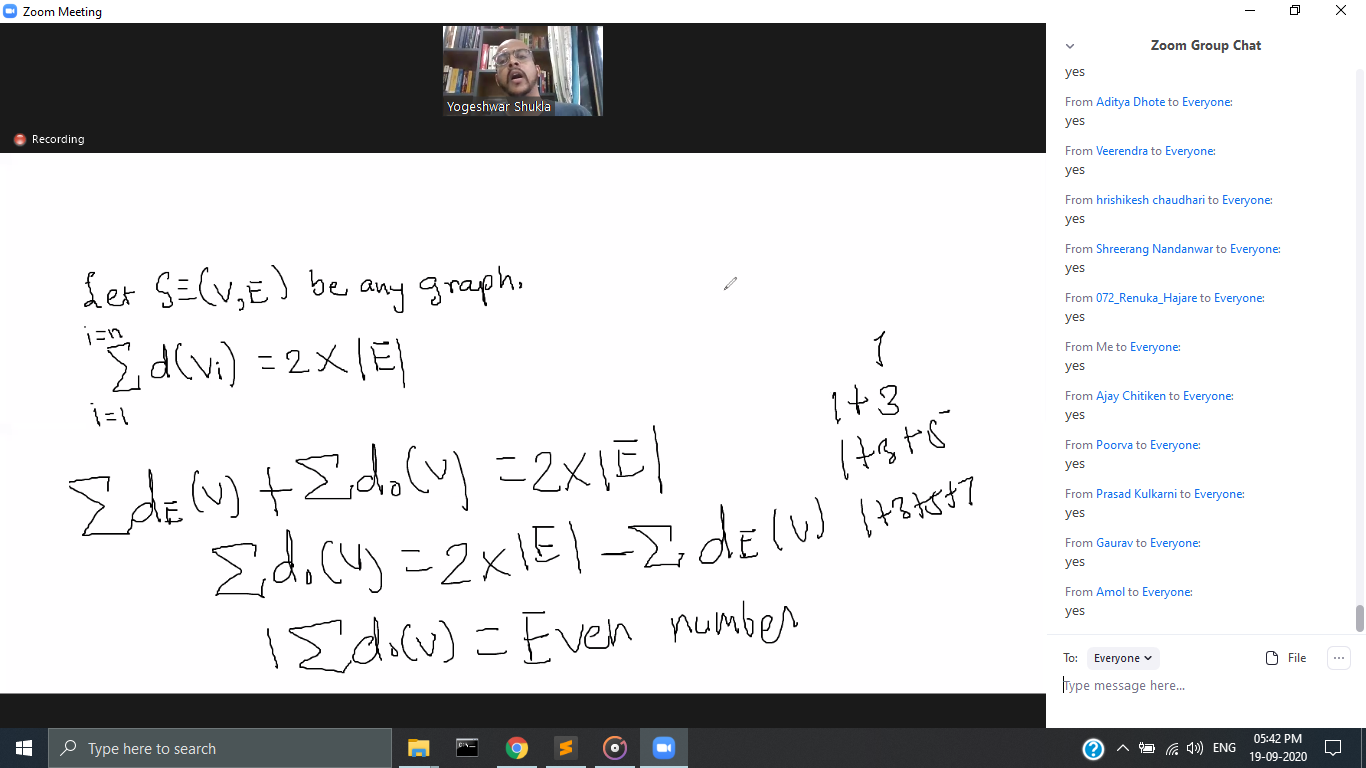 Zoom Meeting
Yogeshwar Shukla
Recording
Let G≡(V,E) be any graph.
i=n
∑ d(vi) = 2×|E|
i=1
∑ dE(v) + ∑ do(v) = 2×|E|
∑ do(v) = 2×|E| − ∑ dE(v)
|∑ do(v) = Even number
1
1+3
1+3+5
1+3+5+7
Zoom Group Chat
yes
From Aditya Dhote to Everyone:
yes
From Veerendra to Everyone:
yes
From hrishikesh chaudhari to Everyone:
yes
From Shreerang Nandanwar to Everyone:
yes
From 072_Renuka_Hajare to Everyone:
yes
From Me to Everyone:
yes
From Ajay Chitiken to Everyone:
yes
From Poorva to Everyone:
yes
From Prasad Kulkarni to Everyone:
yes
From Gaurav to Everyone:
yes
From Amol to Everyone:
yes
To: Everyone File
Type message here...
Type here to search
ENG
05:42 PM
19-09-2020